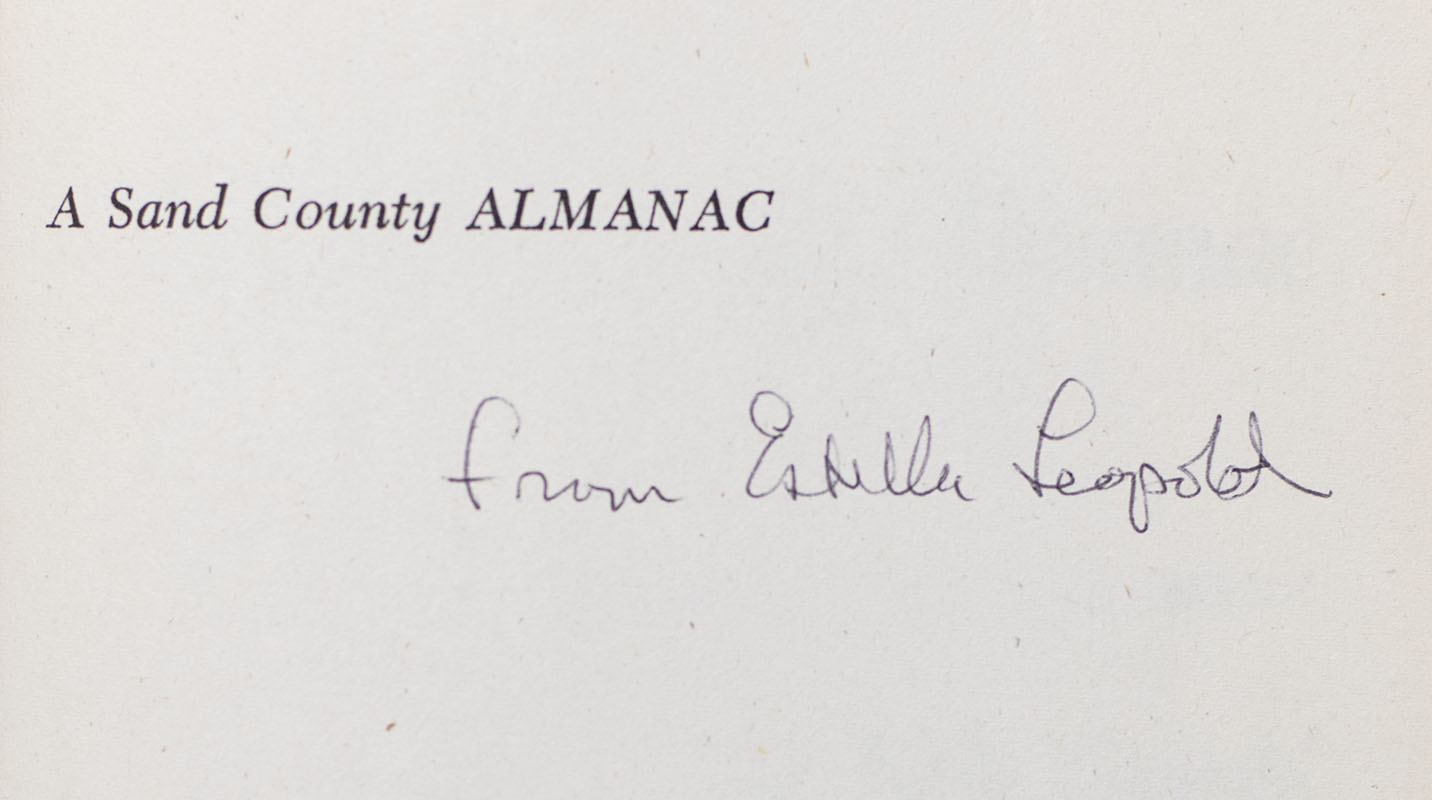 A Sand County ALMANAC
from Estella Leopold